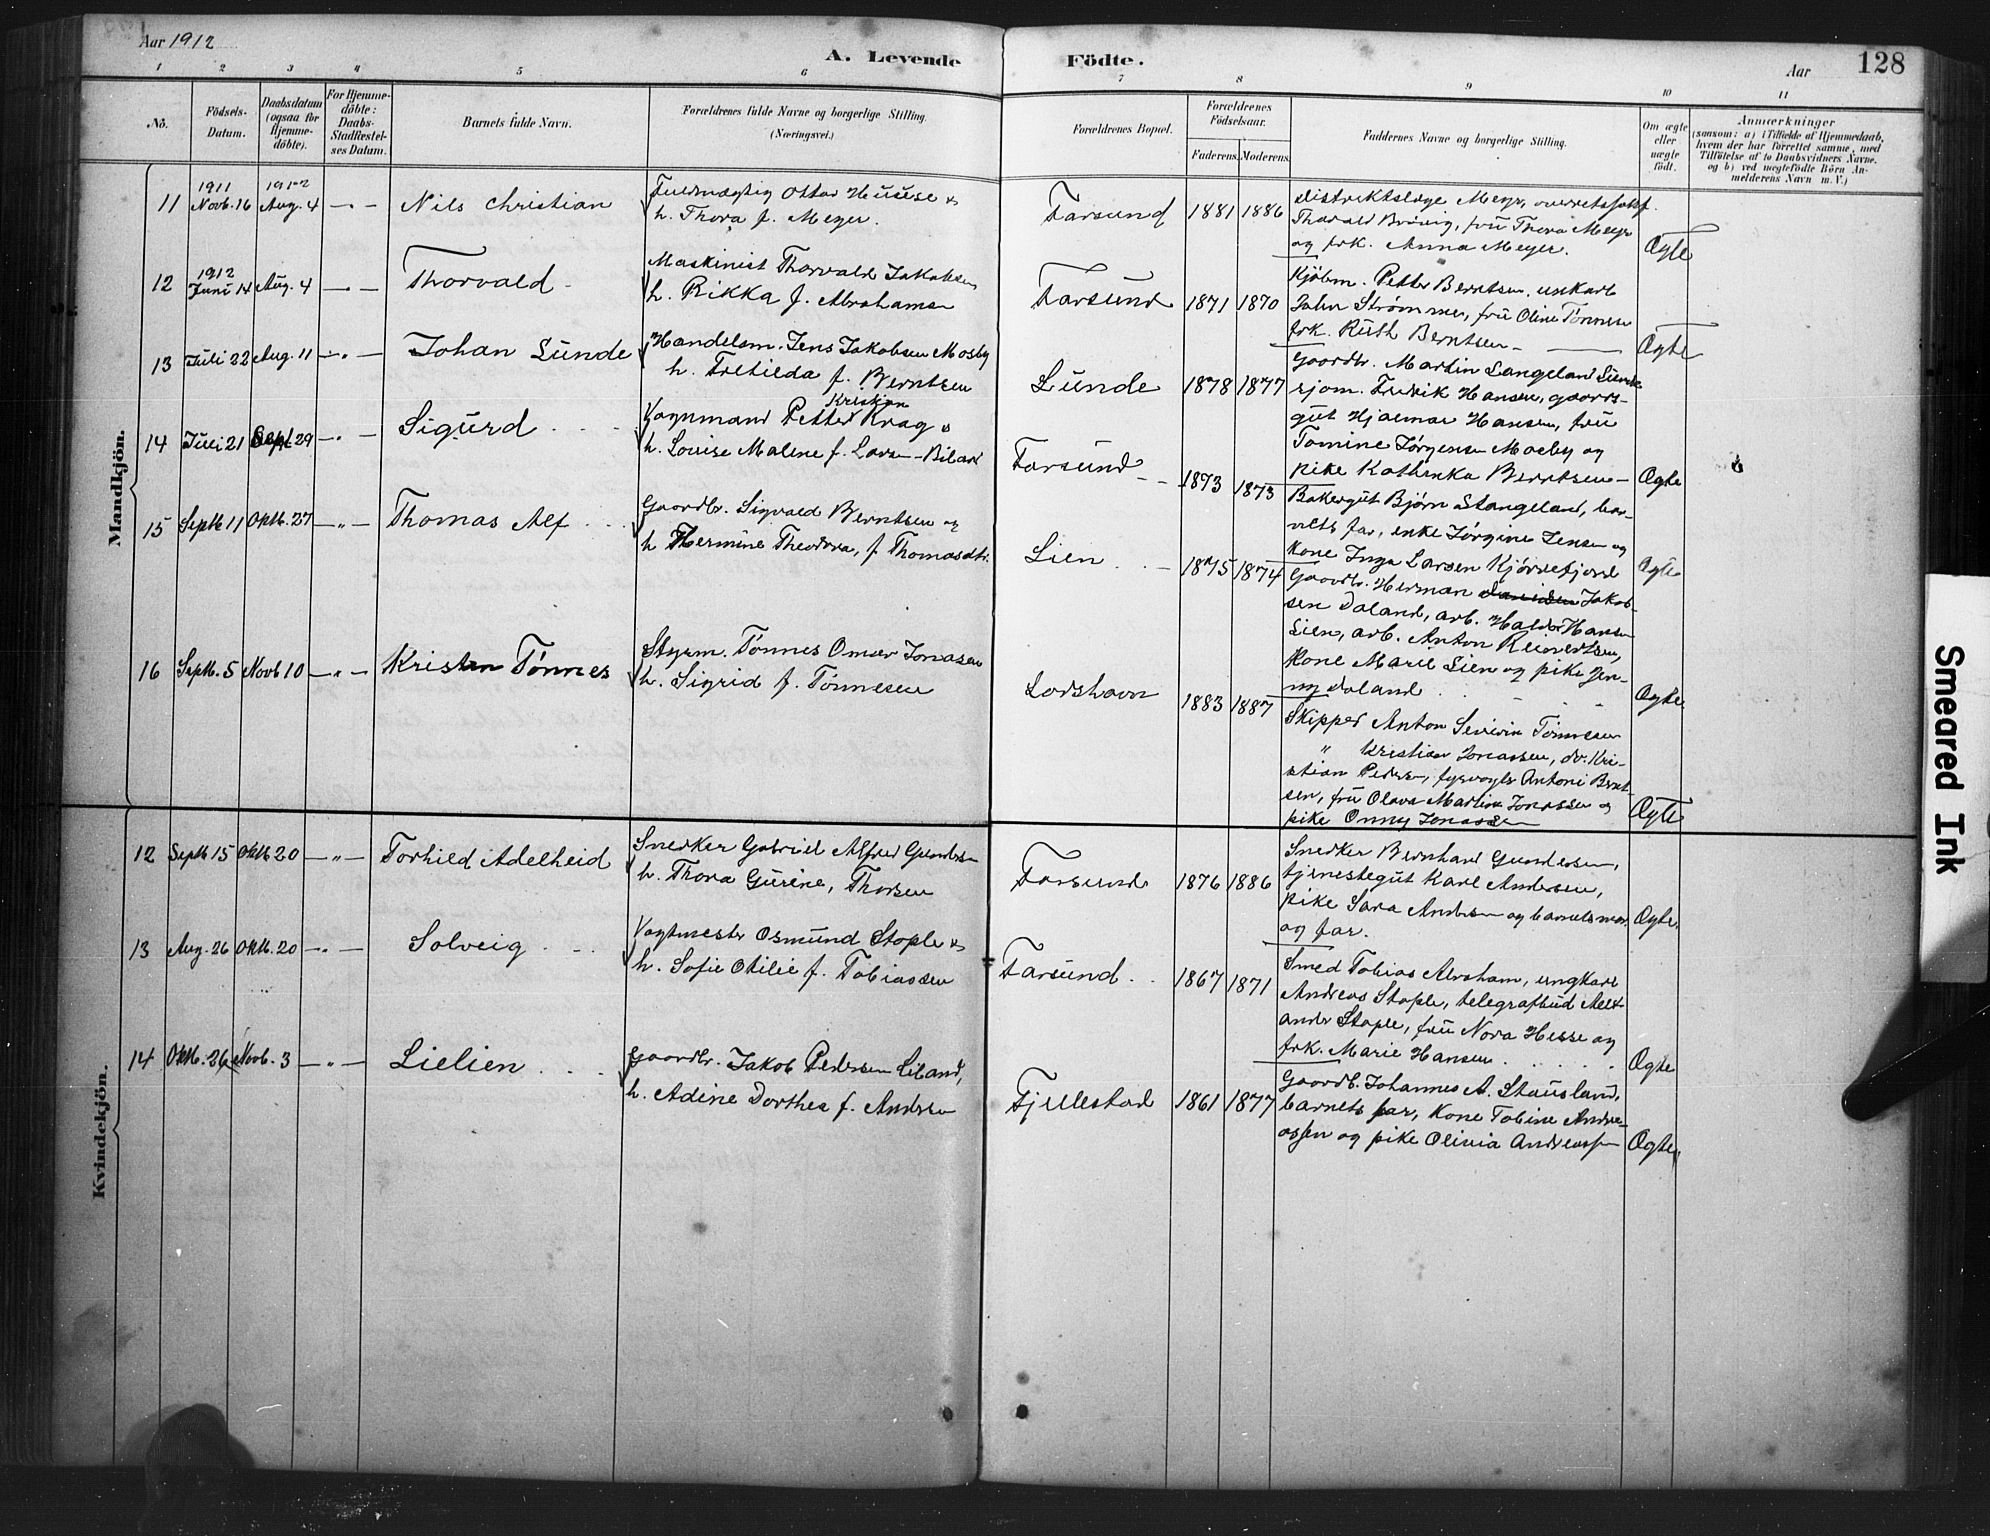 Aar 1912
A. Levende
Födte.
Aar
128
1 2 3 4 5 6 7 8 9 10 11
No.
Födsels-
Datum.
Daabsdatum
(ogsaa for
Hjemme-
döbte).
For Hjemme-
döbte:
Daabs-
Stadfæstel-
ses Datum.
Barnets fulde Navn.
Forældrenes fulde Navne og borgerlige Stilling.
(Næringsvei.)
Forældrenes Bopæl.
Forældrenes
Födselsaar.
Faderens. Moderens.
Faddernes Navne og borgerlige Stilling.
Om ægte
eller
uægte
födt.
Anmærkninger
(saasom: a) i Tilfælde af Hjemmedaab,
hvem der har forrettet samme, med
Tilföielse af to Daabsvidners Navne.
og b) ved uægtefödte Börn An-
melderens Navn m. V.)
Mandkjön.
11 1911 Novb. 16 1912 Aug. 4 — " — Nils Christian
Fuldmægtig Ottar Huuse &
h. Thora f. Meyer.
Farsund 1881 1886
Distriktslæge Meyer, overretssakf.
Thorald Brövig, frü Thora Meyer
og frk. Anna Meyer.
Ægte
12 1912 Juni 14 Aug. 4 — " — Thorvald
Maskinist Thorvald Jakobsen
h. Rikka f. Abrahamsen
Farsund 1871 1870
Kjöbm. Petter Berntsen, unkarl
John Strømmen, frü Oline Tönnesen
frk. Rüth Berntsen —
Ægte
13 Juli 22 Aug. 11 — " — Johan Lunde
Handelsm. Jens Jakobsen Mosby
h. Tretilda f. Berntsen
Lunde 1878 1877
Gaardbr. Martin Langeland Lunde
sjom. Fredrik Hansen, gaards-
gut Hjalmar Hansen, frü
Tomine Jørgensen Mosby og
pike Kathinka Berntsen —
Ægte
14 Juli 21 Sept 29 — " — Sigurd
Vognmand Petter Kristian Krag &
h. Louise Malene f. Larsen
Farsund 1873 1873
Bakergut Bjørn Stangeland, bar-
nets far, enke Jørgine Jensen og
kone Inga Larsen Kjørrefjord
Ægte
15 Septb 11 Oktb. 27 — " — Thomas Alf
Gaardbr. Sigvald Berntsen og
h Hermine Theodora, f Thomasdtr.
Lien 1875 1874
Gaardbr. Herman Jakob-
sen Daland, arb. Haldor Hansen
Lien, arb. Anton Reinertsen,
Kone Marie Lien og pike Jen-
ny Daland
Ægte
16 Septb. 5 Novb 10 — " — Kristen Tönnes
Styrm. Tönnes Omer Jonassen
h. Sigrid f. Tönnesen
Loshavn 1883 1887
Skipper Anton Severin Tönnesen
" Kristian Jonassen, do. Kri-
stian Pedersen, fyrvogter Antoni Bernt-
sen, frü Olava Martine Jonassen og
pike Onny Jonassen
Ægte
Kvindekjön.
12 Septb 15 Oktb 20 — " — Torhild Adelheid
Snedker Gabriel Alfred Gundersen
h. Thora Gurine, Thorsen
Farsund 1876 1886
Snedker Bernhard Gundersen,
tjenestegut Karl Andersen,
pike Sara Andersen og barnets mor
og far.
Ægte
13 Aug. 26 Oktb. 20 — " — Solveig
Vagtmester Osmund Stople &
h. Sofie Otilie f. Tobiassen
Farsund 1867 1871
Smed Tobias Abraham, ungkarl
Andreas Stople, telegrafbud Aleks-
ander Stople, frü Nora Hesse og
frk. Marie Hansen
Ægte
14 Oktb. 26 Novb. 3 — " — Lielien
Gaardbr. Jakob Pedersen Liland,
h. Adine Dorthea f. Andersen
Fjellestad 1861 1877
Gaardb. Johannes A. Stausland,
barnets far, Kone Tobine Andre-
assen og pike Olivia Andreassen
Ægte
Smeared Ink